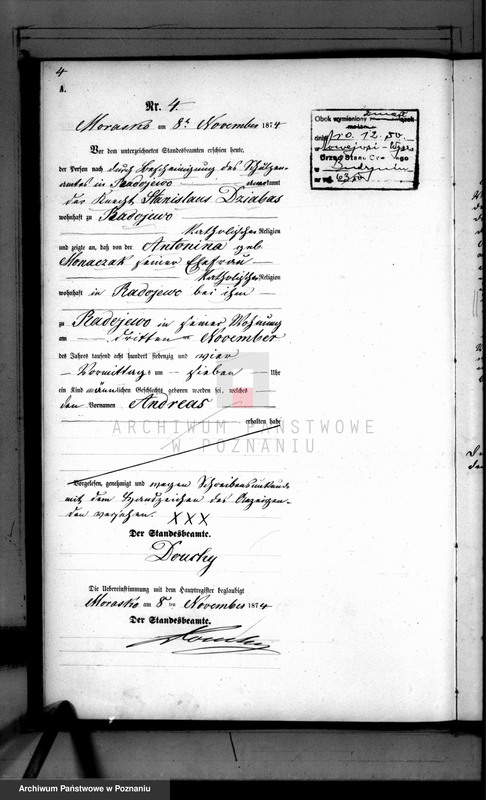 4
A.
Nr. 4
Morasko am 8ten November 1874
Vor dem unterzeichneten Standesbeamten erschien heute,
der Person nach durch Bescheinigung des Schulzen-
amtes in Radojewo kannt
der Knecht Stanislaus Dziabas
wohnhaft zu Radojewo
katholischer Religion
und zeigte an, daß von der Antonina geb.
seiner Ehefrau
katholischer Religion
wohnhaft in Radojewo bei ihm
zu Radojewo in seiner Wohnung
am dritten November
des Jahres tausend acht hundert siebenzig und vier
Vormittags um sieben Uhr
ein Kind männlichen Geschlechts geboren worden sei, welches
den Vornamen Andreas
erhalten habe
Vorgelesen, genehmigt und wegen Schreibensunkunde
mit dem Handzeichen des Anzeigen-
den versehen. XXX
Der Standesbeamte.
Die Uebereinstimmung mit dem Hauptregister beglaubigt
Morasko am 8ten November 1874
Der Standesbeamte.
Obok wymieniony zmarł
dnia 10.12.50.
w
Urząd Stanu Cywilnego
w
ARCHIWUM PAŃSTWOWE
W POZNANIU
Archiwum Państwowe w Poznaniu